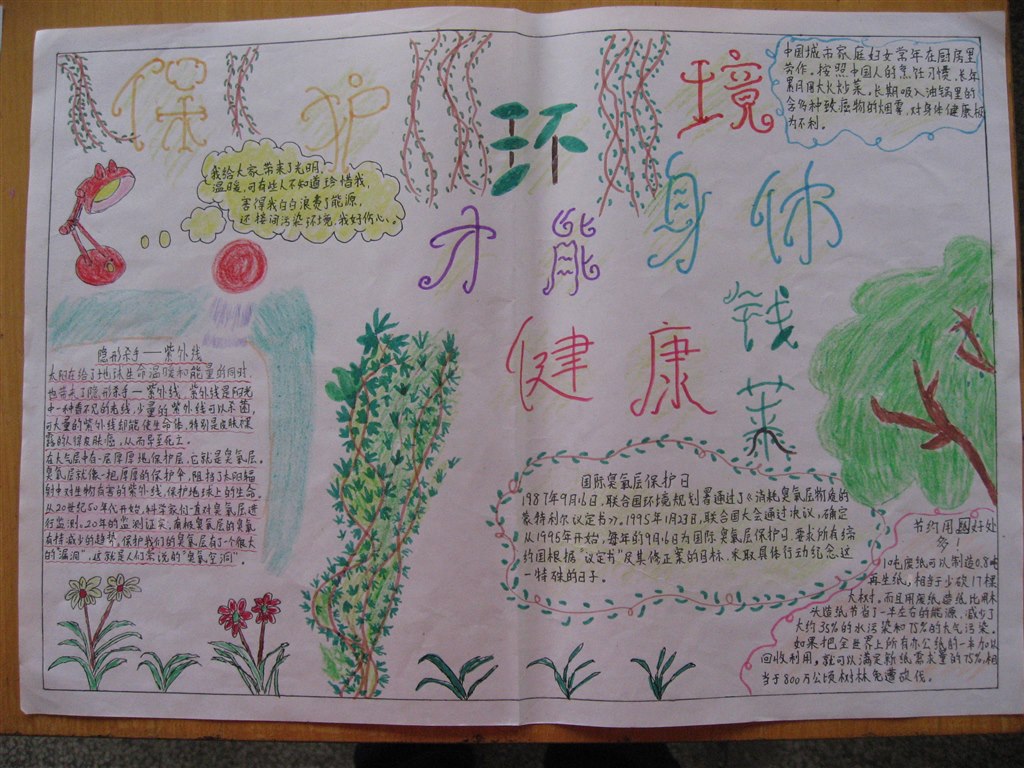 保护环境
才能身体
健康
钱菜
中国城市家庭妇女常年在厨房里
劳作。按照中国人的烹饪习惯,长年
累月用大火炒菜,长期吸入油锅里的
含多种致癌物的烟雾,对身体健康极
为不利。
我给大家带来了光明,
温暖,可有些人不知道珍惜我,
害得我白白浪费了能源,
还接间污染环境,我好伤心。
隐形杀手——紫外线
太阳在给了地球生命温暖和能量的同时,
也带来了隐形杀手—紫外线。紫外线是阳光
中一种看不见的光线,少量的紫外线可以杀菌,
可大量的紫外线却能使生命体,特别是皮肤裸
露的人得皮肤癌,从而导至死亡。
在大气层中有一层厚厚绳保护层,它就是臭氧层。
臭氧层就像一把厚厚的保护伞,阻挡了太阳辐
射中对生物有害的紫外线,保护地球上的生命。
从20世纪50年代开始,科学家们一直对臭氧层进
行监测。20年的监测证实,南极臭氧层的臭氧
有持减少的趋势,保护我们的臭氧层有了个很大
的“漏洞”,这就是人们常说的“臭氧空洞”。
国际臭氧层保护日
1987年9月16日,联合国环境规划署通过了《消耗臭氧层物质的
蒙特利尔议定书》。1995年1月23日,联合国大会通过决议,确定
从1995年开始,每年的9月16为国际臭氧层保护日,要求所有缔
约国根据“议定书”及其修正案的目标,采取具体行动纪念这
一特殊的日子。
节约用纸好处
多!
10吨废纸可以制造0.8吨
再生纸,相当于少砍17棵
大树。而且用废纸造纸比用木
头造纸节省了一半左右的能源,减少了
大约35%的水污染和75%的大气污染。
如果把全世界上所有办公纸的一半加以
回收利用,就可以满足新纸需求量的75%,相
当于800万公顷树林免遭砍伐。